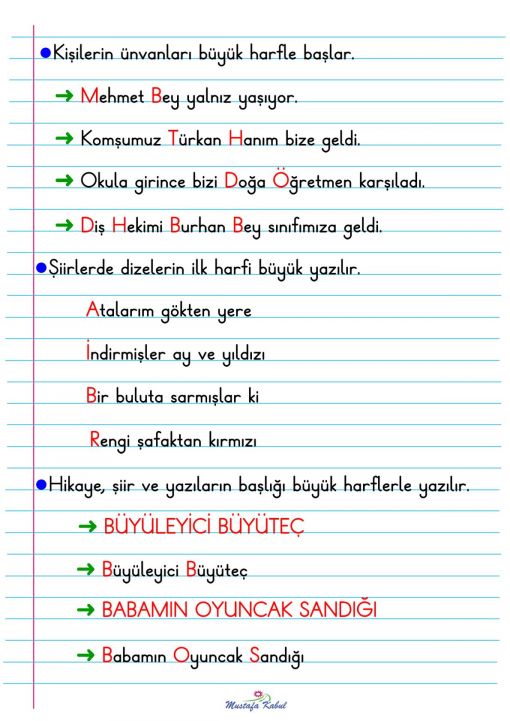 ●Kişilerin ünvanları büyük harfle başlar.
→ Mehmet Bey yalnız yaşıyor.
→ Komşumuz Türkan Hanım bize geldi.
→ Okula girince bizi Doğa Öğretmen karşıladı.
→ Diş Hekimi Burhan Bey sınıfımıza geldi.
●Şiirlerde dizelerin ilk harfi büyük yazılır.
Atalarım gökten yere
İndirmişler ay ve yıldızı
Bir buluta sarmışlar ki
Rengi şafaktan kırmızı
●Hikaye, şiir ve yazıların başlığı büyük harflerle yazılır.
→ BÜYÜLEYİCİ BÜYÜTEÇ
→ Büyüleyici Büyüteç
→ BABAMIN OYUNCAK SANDIĞI
→ Babamın Oyuncak Sandığı
Mustafa Kabul